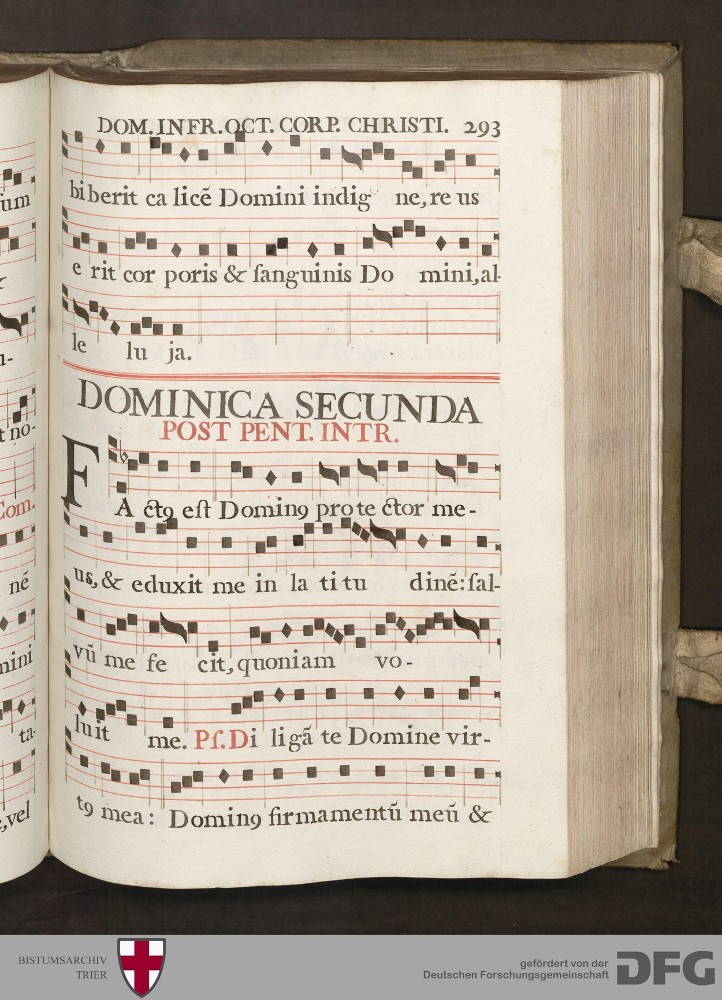 DOM. INFR. OCT. CORP. CHRISTI. 293
bi berit ca licē Domini indig ne, re us
e rit cor poris & ſanguinis Do mini, al-
le lu ja.
DOMINICA SECUNDA
POST PENT. INTR.
FA ctꝯ eſt Dominꝯ pro te ctor me-
us, & eduxit me in la ti tu dinē: ſal-
vū me fe cit, quoniam vo-
luit me. Pſ. Di ligā te Domine vir-
tꝯ mea: Dominꝯ firmamentū meū &
um
t no-
Com.
nē
mini
ta-
, vel
BISTUMSARCHIV
TRIER
gefördert von der
Deutschen Forschungsgemeinschaft
DFG